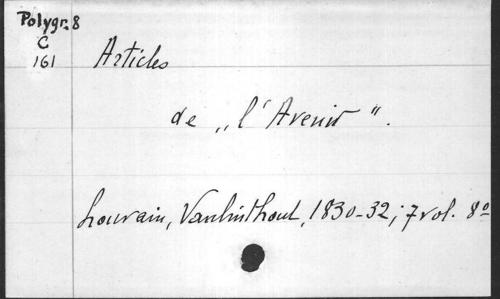 Polygr. 8
C
161
Articles
de „l'Avenir".
Louvain, Vanlinthout, 1830-32; 7 vol. 8º